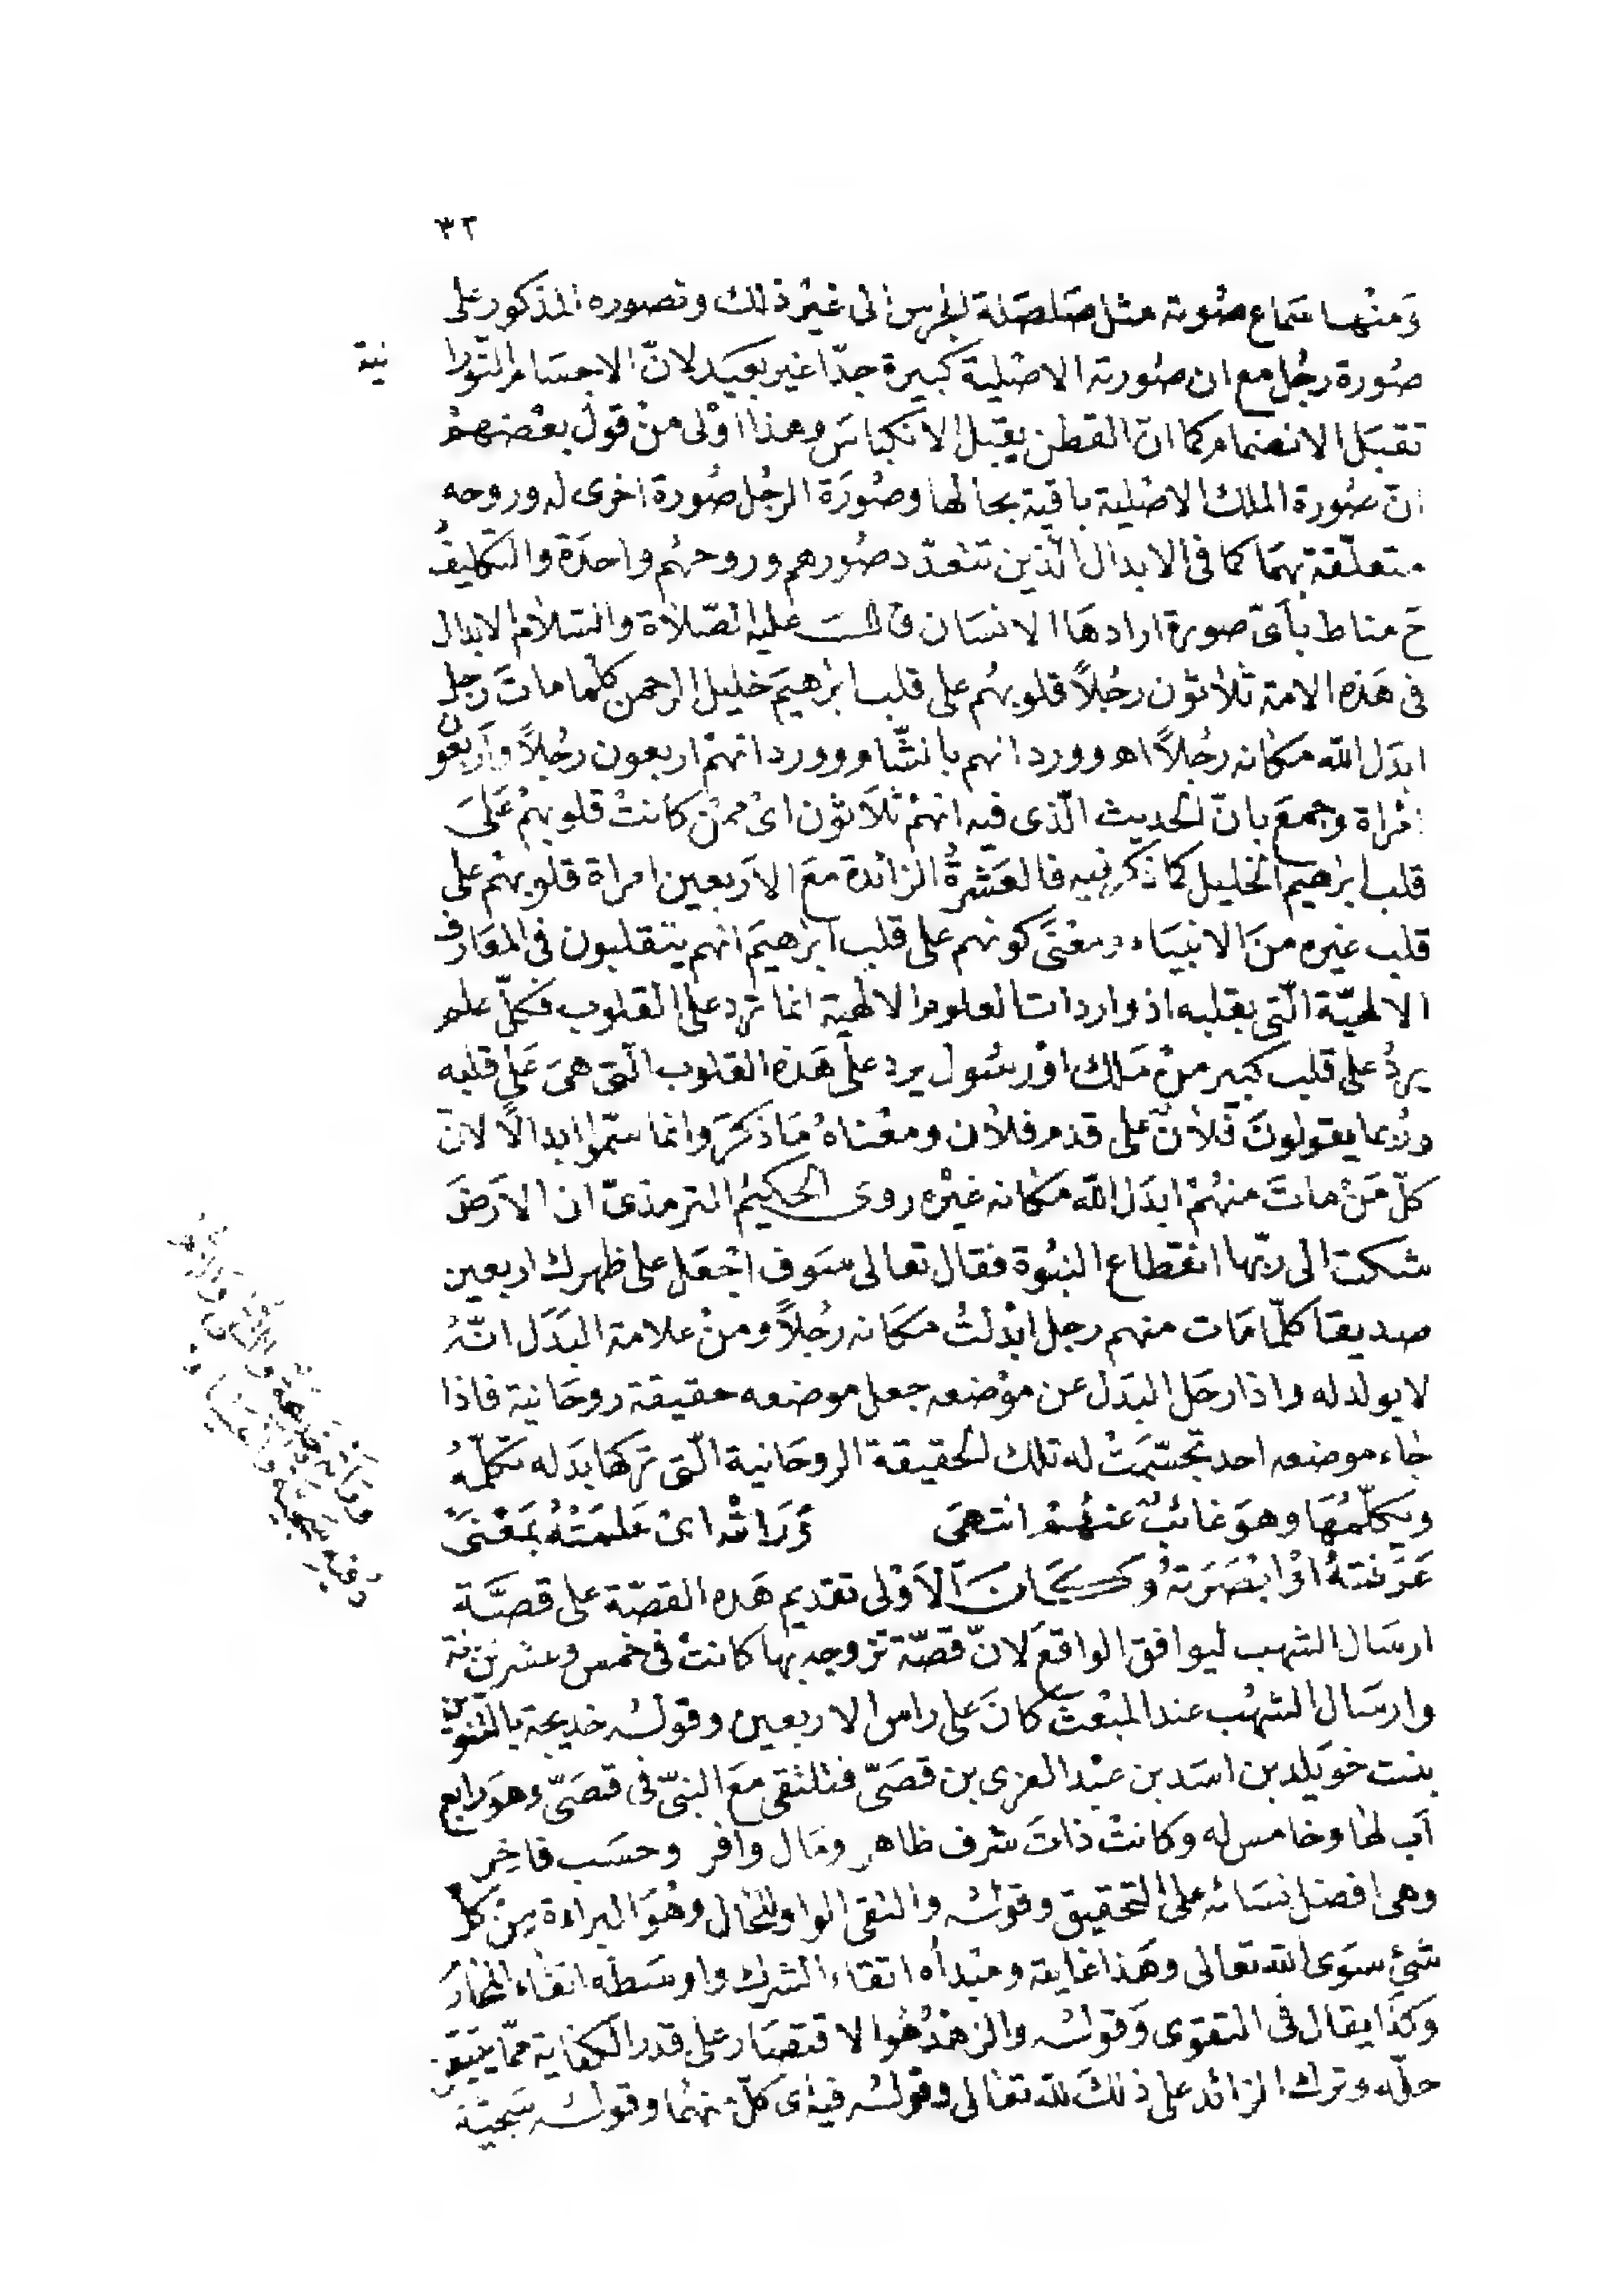 ٣٢
وَمنْها سَماع صُوته مثل صَلصَلة الجرس الى غيْر ذلك وتصوره المذكور على
صُورة رجُل مع ان صُورته الاصْلية كبيرة جدّا غير بَعيَد لانّ الاجسَام النّورا نية
تقبَل الانضمام كما انّ القطن يقبل الانكباسَ وهذا اوْلى منْ قوْل بعْضهمْ
انّ صُورة الملك الاصْلية باقية بحالها وصُورَة الرجُل صُورة اخرى له وروحه
متعلّقة بهمَا كما فى الابدال الّذين تتعدّد صُورهم وروحهُم واحدَة والتكليفُ
ح مناط بأىّ صورة ارادهَا الانسَان قال عليه الصّلاة والسّلام الابدال
فى هَذه الامة ثلاثوُن رجُلاً قلوبهُم على قلب ابْرهيمَ خليل الرحمن كلّما ماتَ رَجل
ابدَل الله مكانه رجُلاً اهـ وورد انهم بالشّام وورد انهمْ اربعون رجُلاً وأربعُون
امْراة وجمعَ بانّ الحديث الّذى فيه انهمْ ثلاَثوُن اىْ ممنْ كانتْ قلوبهمْ عَلىَ
قلب ابرْهيم الخليل كما ذكر فيه فالعَشرةُ الزائدة معَ الاَربعين امراة قلوبهمْ على
قلب غيره منَ الانبيَاء ومعْنَى كونهم على قلب ابرْهيمَ انهم يتقلبون فى المعَارف
الالهيّة الّتى بقلبه اذ واردات العلوم الالهية انما ترد على القلوب فكلّ علم
يردُ على قلب كبير منْ مَلك اوْ رسُول يرد على هَذه القلوب الّتى هىَ عَلى قلبه
ورُبما يقولونَ فلاُنٌ على قدم فلان ومعْناهُ مَا ذكرَ وانما سمّوا ابدالاً لانّ
كلّ مَنْ ماتَ منهُمْ ابدَل الله مكانه غيْره روى الحكيمُ الترمذىّ ان الاَرضَ
شكت الى ربّها انقطاع النبُوة فقال تعالى سَوف اجْعَل على ظهرك اربعين
صديقا كلّما مَات منهم رجل ابْدلتُ مكَانه رجُلاً ومنْ علامة البَدَل انّهُ
لا يولد له واذا رحَل البَدَل عن موْضعه جعل موضعه حقيقة روحَانية فاذا
جَاء موضعه احد تجسّمَتْ له تلك الحقيقة الروحَانية الّتى تركها بدَله تكلّمهُ
ويكلّمُهَا وهوَ غائبٌ عنهُمْ انتهىَ وَرَاتْه اىْ عَلمَتْهُ بمَعْنىَ
عَرَفتهُ اوْ ابْصَرَتهُ وَكَانَ الاَوْلى تقديم هَذه القصّة على قصَّة
ارسَال الشهب ليوافق الواقعَ لانّ قصّة تزوجه بها كانتْ فى خمس وعشرين سنة
وارسَال الشهُب عند المبْعث كانَ على راس الاربعين وقوله خديجة بالتنوين
بنت خوَيلد بن اسَد بن عبْد العزى بن قصَىّ فتلتقى معَ النبىّ فى قصَىّ وهوَ رابع
اَب لها وخامس له وكانتْ ذاتَ شرف ظاهر ومَال وافر وحسَب فاخِر
وهى افضل نسَائه على التحقيق وقوله والتقى الواو للحَال وهُوَ البراءة مِنْ كلّ
شئ سوَى الله تعالى وهَذا غايته ومبْدأه اتقاء الشرك واوسَطه اتقاء المحَارم
وَكذَا يقال فى التقوى وَقوله والزهْدُ هُوَ الاقتصَار على قدر الكفاية ممّا يتيقن
حلّه وترك الزائد على ذلكَ لله تعَالى وقوله فيهْ اى كلّ منهُما وقوله سَجيّة